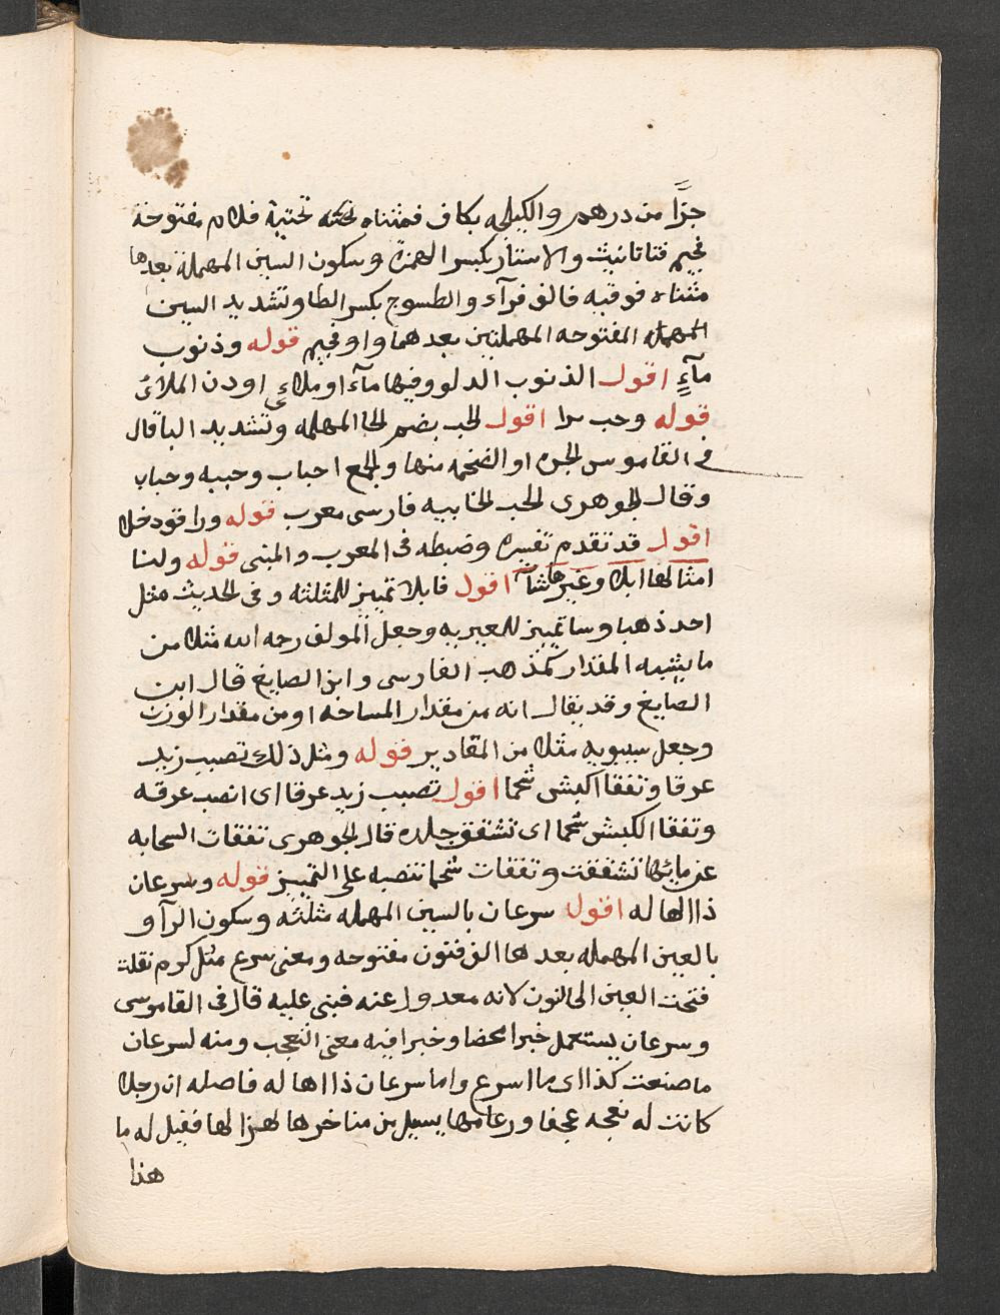 جزَّا من درهم والكيلجه بكاف فمثناه تحته تحتية فلام مفتوحة
فجيم فتا تانيث والاستار بكسر الهمزة وسكون السين المهملة بعدها
مثناه فوقيه فالف فرآء والطسوج بكسر الطا وتشديد السين
المهمله المفتوحه المهملتين بعدهما واو فجيم قوله وذنوب
مآءٍ اقول الذنوب الدلو وفيها مآء او ملاءي او دن الملاءُ
قوله وحب برا اقول الحب بضم الحا المهمله وتشديد الباقال
في القاموس الجره او الضخمه منها والجمع احباب وحببه وحباب
وقال الجوهرى الحب الخابيه فارسى معرب قوله وراقود خلا
اقول قد تقدم تفسيره وضبطه فى المعرب والمبنى قوله ولنا
امثالها ابلا وغيرها شآ اقول فابلا تمييز للمثلثه وفى الحديث مثل
احد ذهبا وسا تمييز للغيريه وجعل المولف رحمه الله مثلا من
مايشبه المقدار كمذهب الفارسى وابن الصايغ قال ابن
الصايغ وقد يقال انه من مقدار المساحه او من مقدار الوزن
وجعل سيبويه مثلا من المقادير قوله ومثل ذلك تصبب زيد
عرقا وتفقا الكبش شحما اقول تصبب زيد عرقا اى انصب عرقه
وتفقا الكبش شحما اى تشقق جلده قال الجوهرى تفقات السحابه
عن مايئها تشققت وتفقات شحما تنصبه على التمييز قوله وسرعان
ذا الهاله اقول سرعان بالسين المهمله مثلثه وسكون الرآو
بالعين المهمله بعدها الف فنون مفتوحه ومعنى سرع مثل كرم نقلت
فتحت العين الى النون لانه معدول عنه فبنى عليه قال فى القاموس
وسرعان يستعمل خبرا محضا وخبرا فيه معنى التعجب ومنه لسرعان
ماصنعت كذا اى ما اسرع واما سرعان ذا اهاله فاصله ان رجلا
كانت له نعجه عجفا ورعامها يسيل من مناخرها لهزالها فقيل له ما
هذا